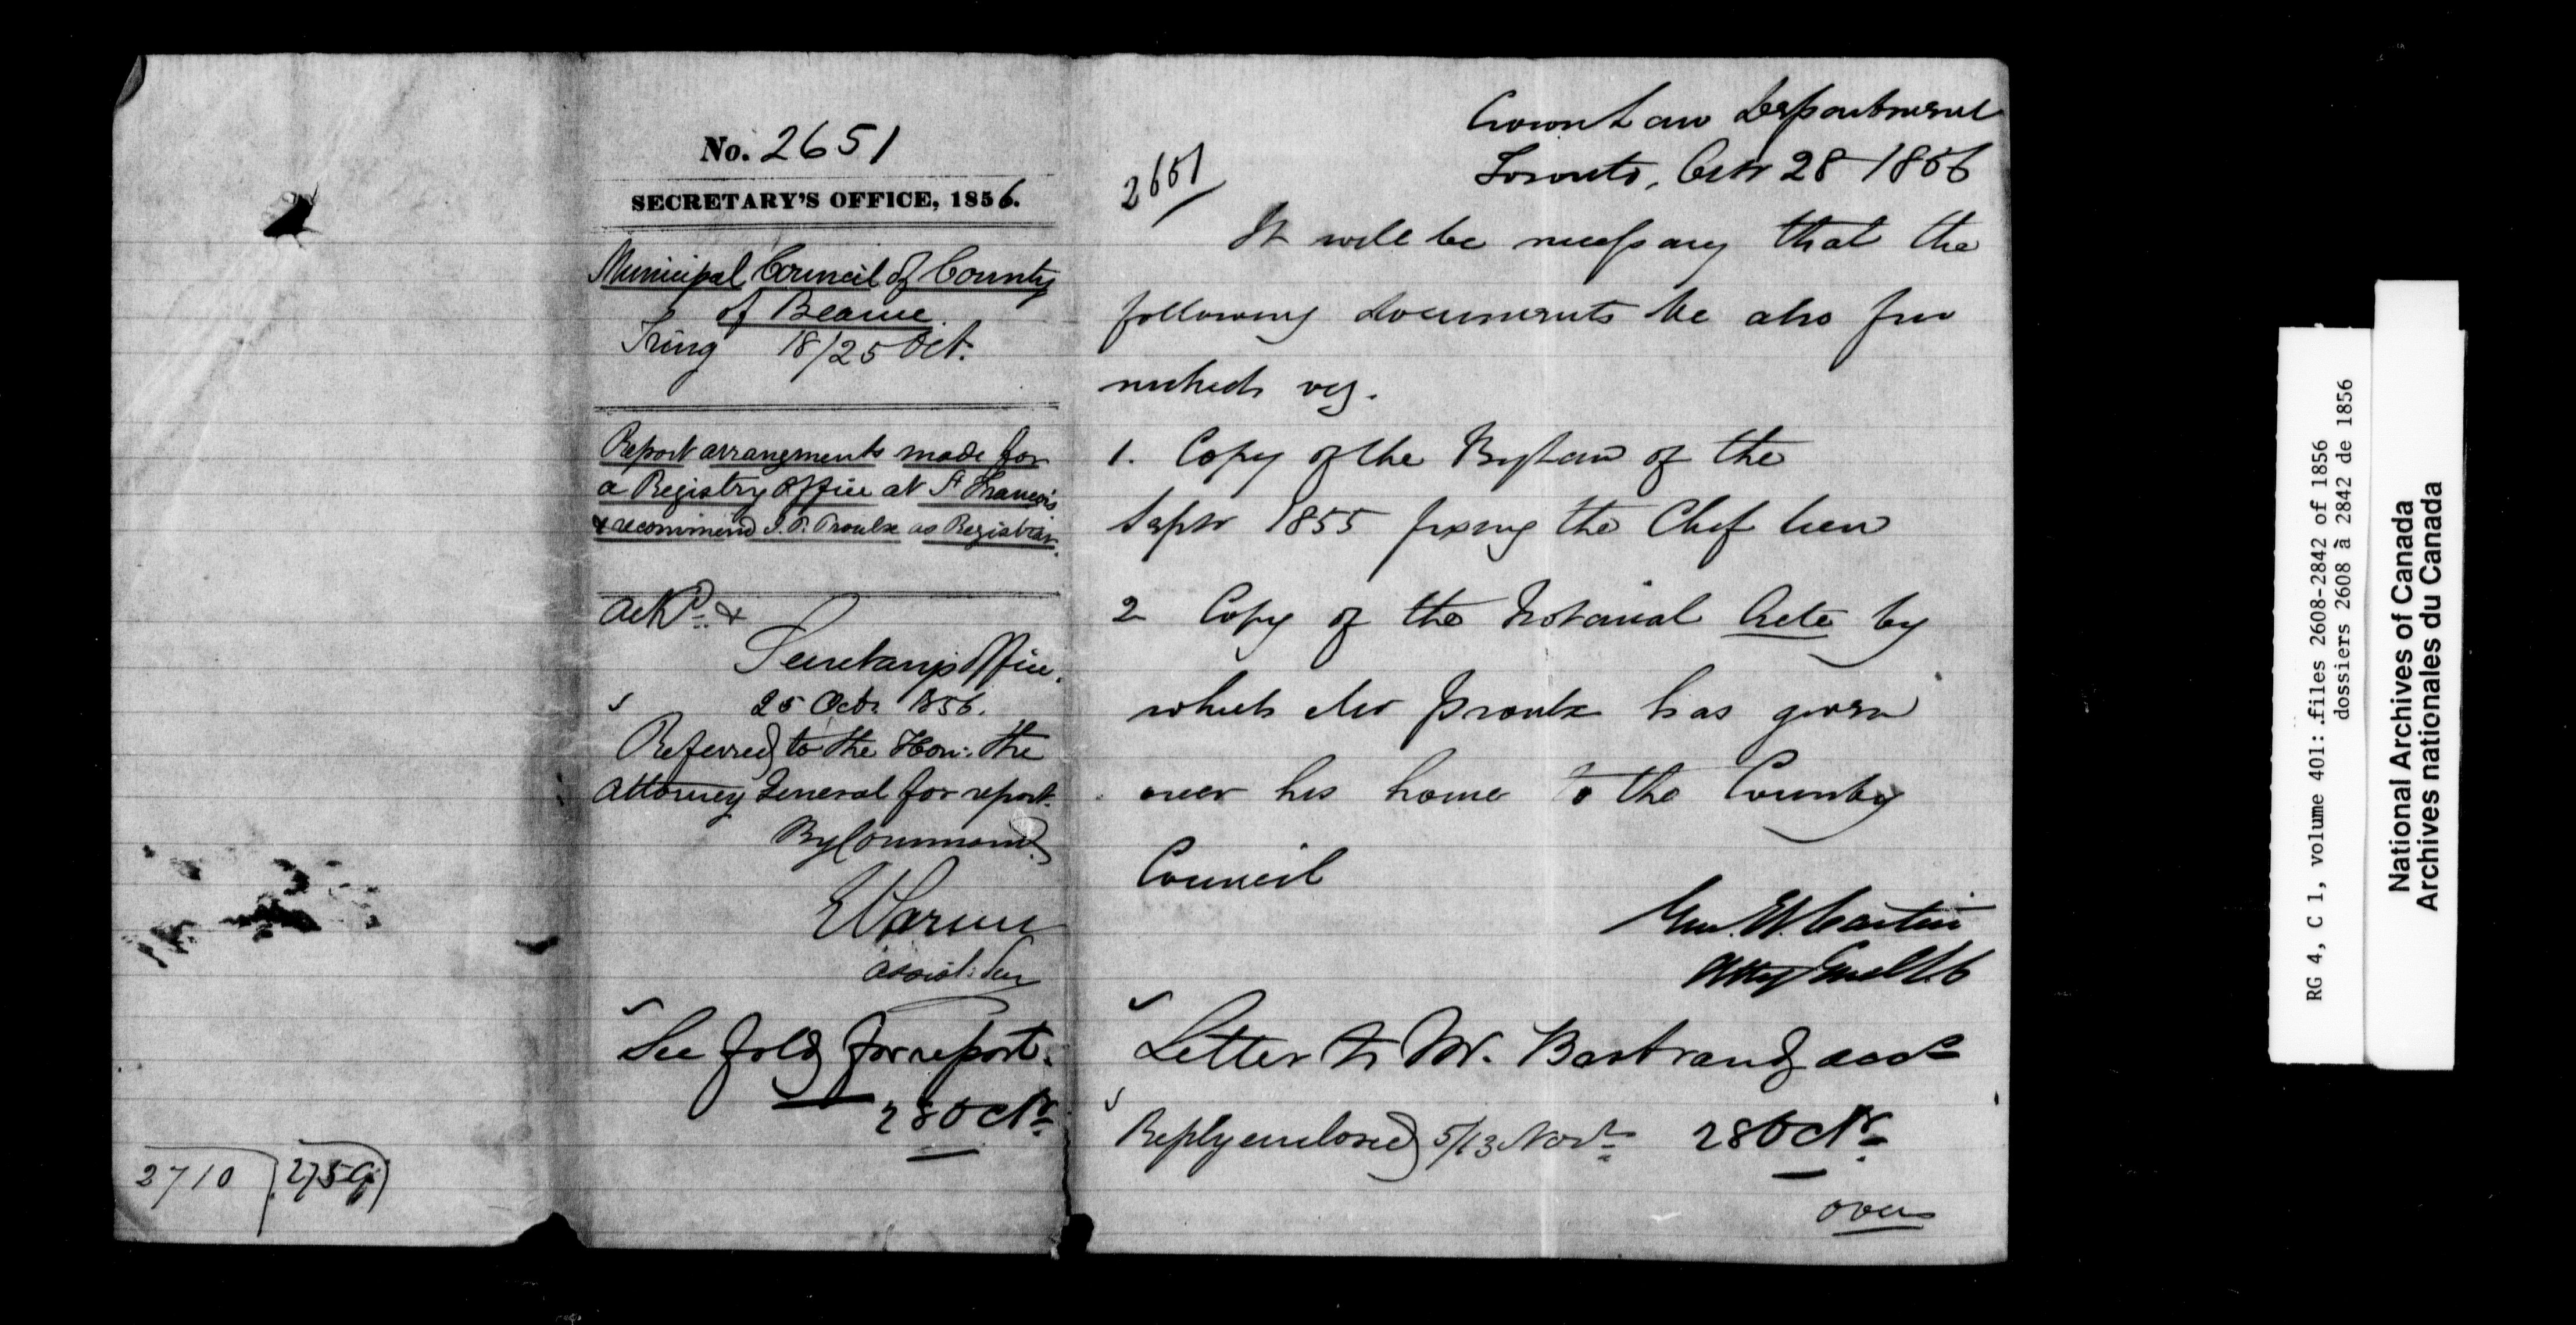 No. 2651
SECRETARY'S OFFICE, 1856.
Municipal Council of County
of Beauce.
Tring 18/25 Oct.
Report arrangements made for
a Registry Office at St François
& recommend J. P. Proulx as Registrar.
Ackd. &
Secretary's Office.
25 Octr. 1856.
Referred to the Hon: the
Attorney General for report.
By Command
E Parent
Assist: Secy
See fold for report.
28 Octr.
2710 2759
Crown Law Department
Toronto, Octr 28 1856
2651
It will be necessary that the
following documents be also fur
nished viz.
1. Copy of the By Law of the
Septr 1855 fixing the Chef lieu
2 Copy of the Notarial Acte by
which Mr Proulx has given
over his home to the County
Council
Geo. Et. Cartier
Atty Genl L C
Letter to Mr. Bertrand accg
28 Octr.
Reply enclosed 5/13 Novr.
over
RG 4, C 1, volume 401: files 2608-2842 of 1856
dossiers 2608 à 2842 de 1856
National Archives of Canada
Archives nationales du Canada